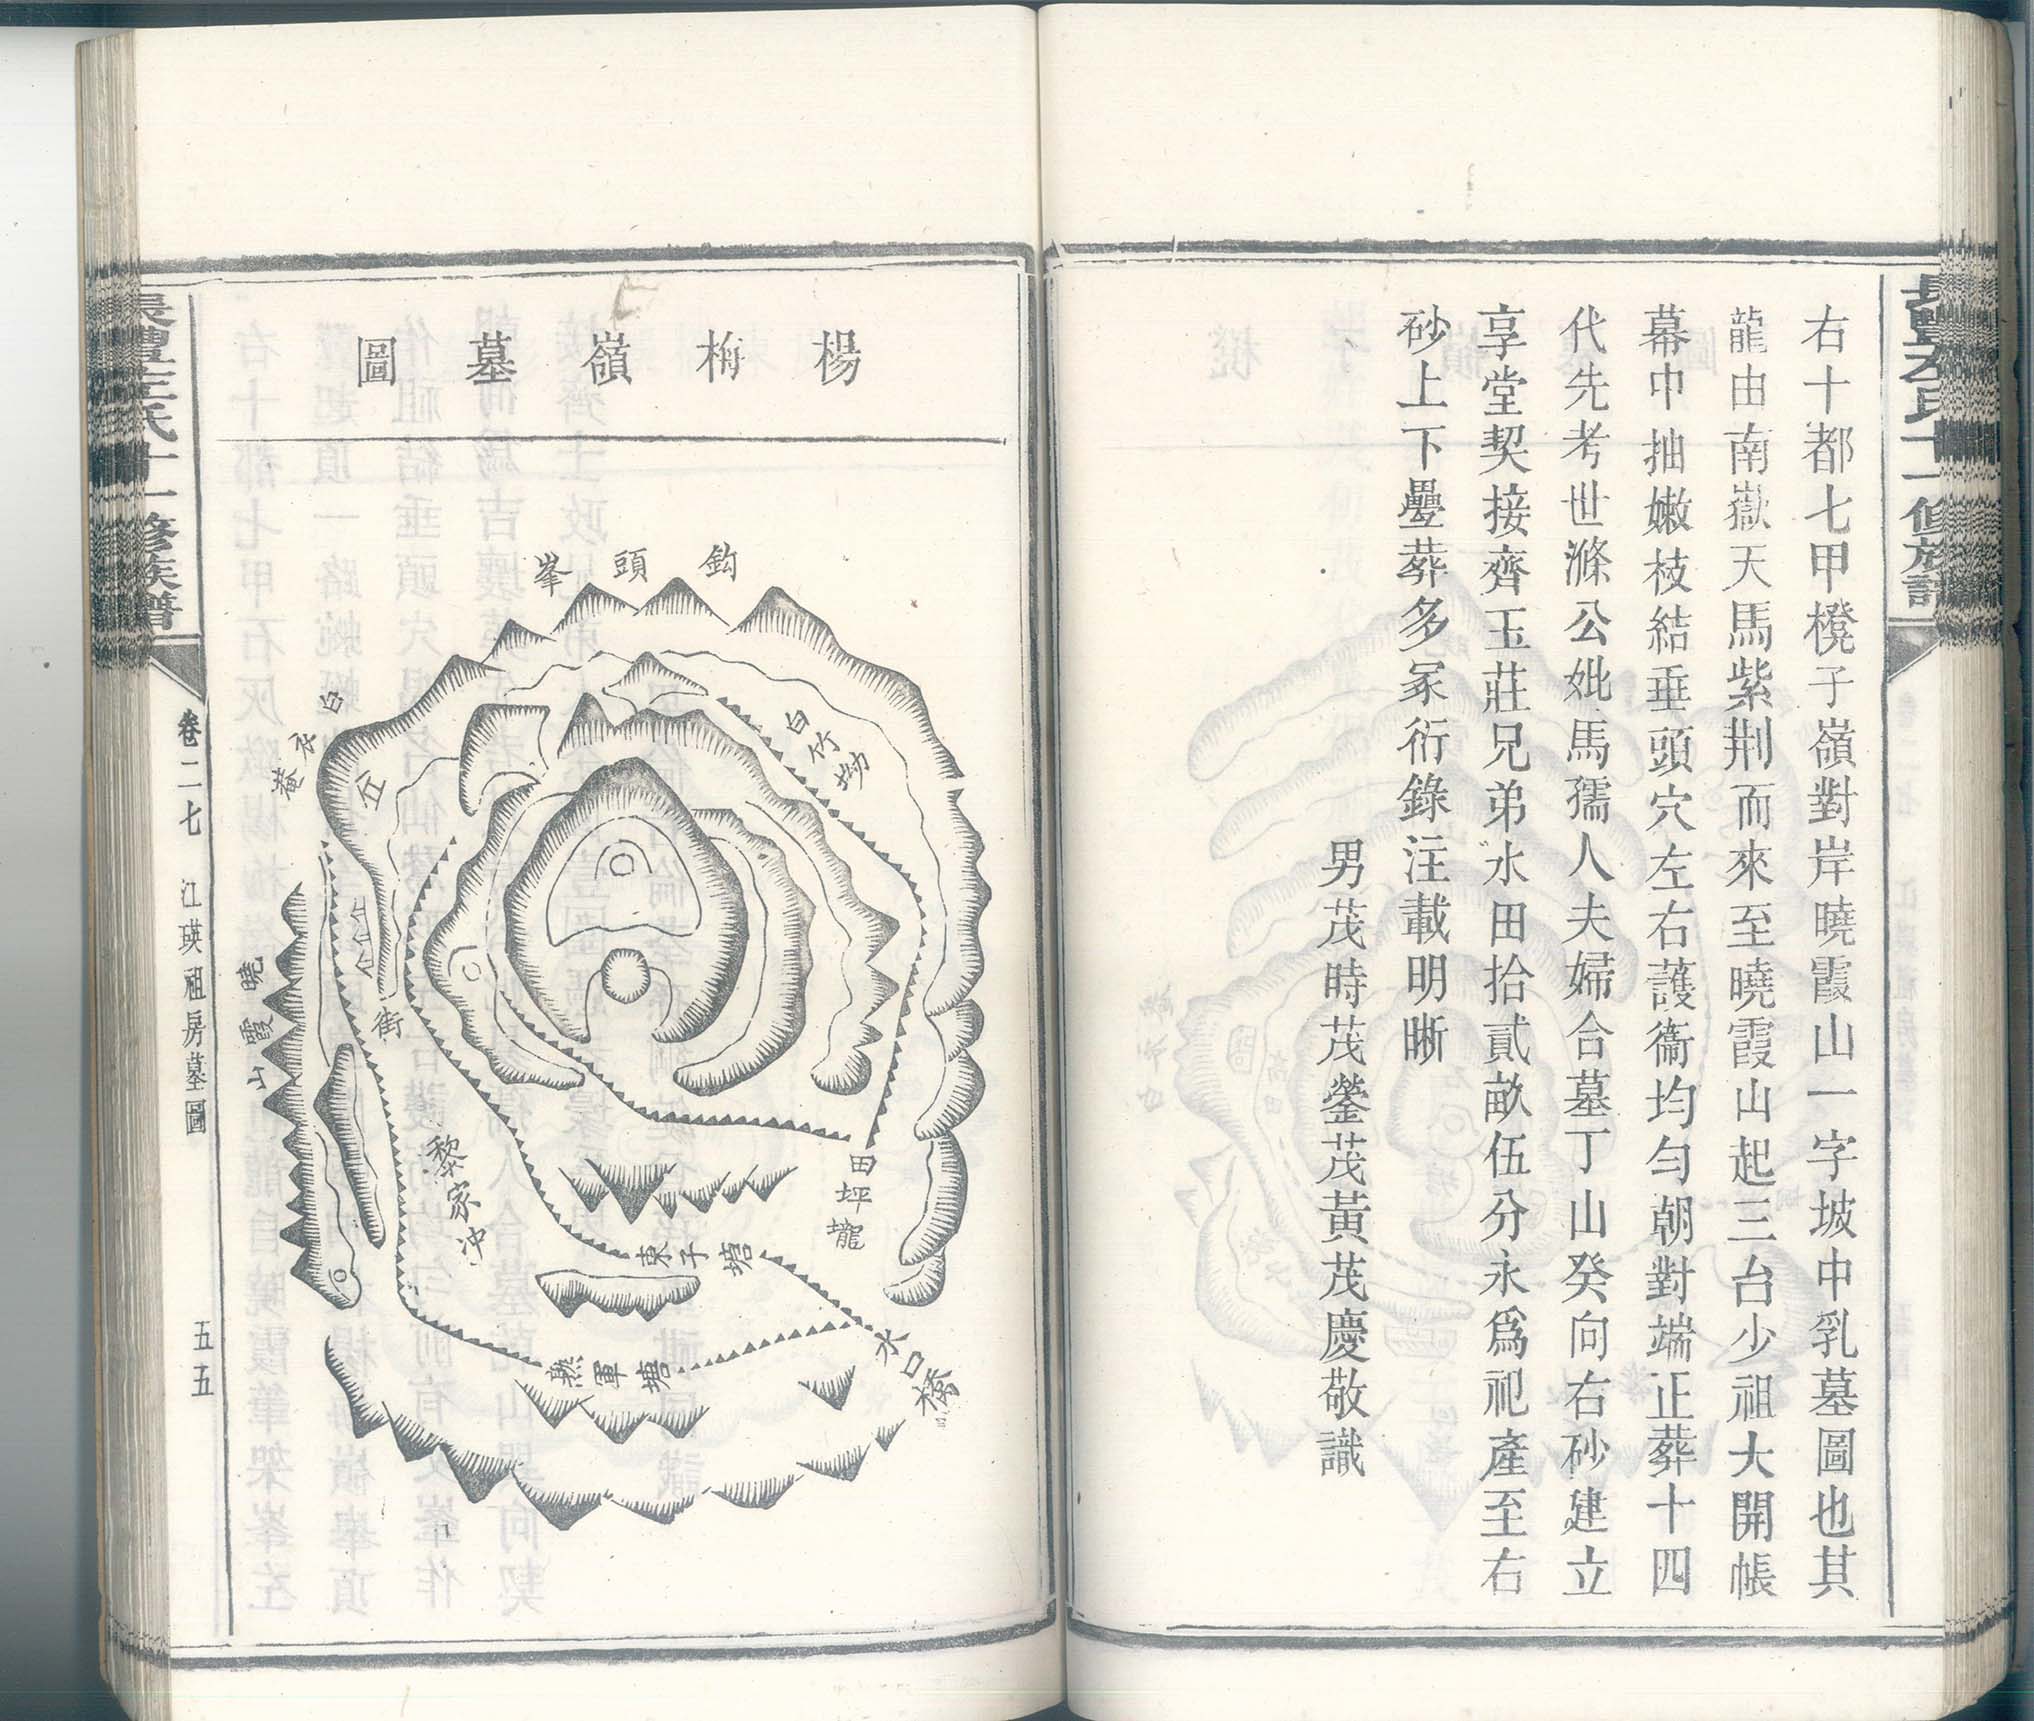 右十都七甲櫈子嶺對岸曉霞山一字坡中乳墓圖也其
龍由南嶽天馬紫荆而來至曉霞山起三台少祖大開帳
幕中抽嫩枝結垂頭穴左右護衞均勻朝對端正葬十四
代先考世滌公妣馬孺人夫婦合墓丁山癸向右砂建立
享堂契接齊玉莊兄弟水田拾貳畝伍分永爲祀產至右
砂上下疊葬多冢衍錄注載明晰
男茂時茂鎣茂黃茂慶敬識
楊栴嶺墓圖
鈎頭峯
白竹坳
白衣菴
曉霞山
街
黎家冲
田坪壠
東子塘
熟軍塘
水口橋
氏十一修族譜
卷二七
江瑛祖房墓圖
五五